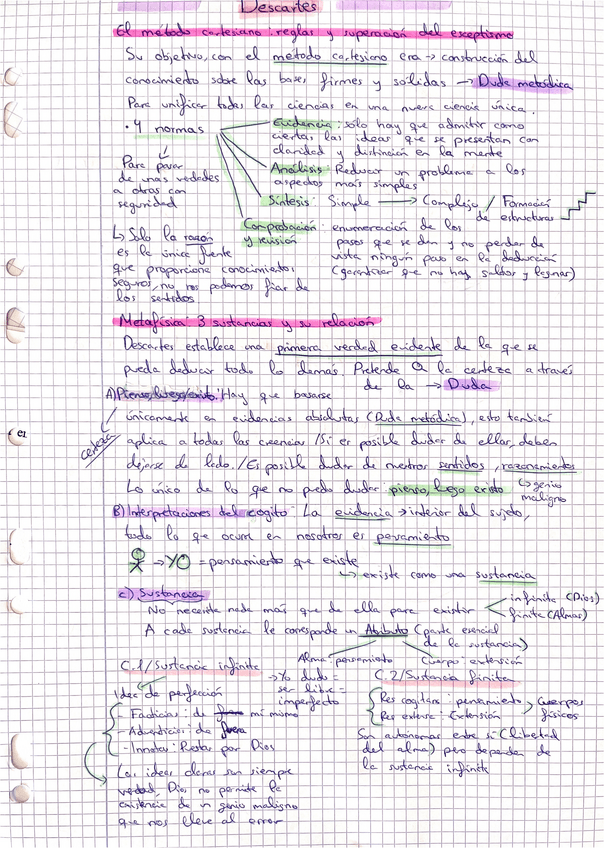 Descartes
El método cartesiano: reglas y superación del exceptismo
Su objetivo, con el método cartesiano era → construcción del
conocimiento sobre las bases firmes y sólidas → Duda metódica
Para unificar todas las ciencias en una nueva ciencia única.
· 4 normas
Evidencia: sólo hay que admitir como
ciertas las ideas que se presentan con
claridad y distinción en la mente
Análisis: Reducir un problema a los
aspectos más simples
Síntesis: Simple → Complejo / Formación
de estructuras
Comprobación: enumeración de los
y revisión
pasos que se dan y no perder de
vista ningún paso en la deducción
(garantizar que no hay saldos y lagunas)
Para pasar
de unas verdades
a otras con
seguridad
↳ Solo la razón
es la única fuente
que proporciona conocimientos
seguros, no nos podemos fiar de
los sentidos
Metafísica: 3 sustancias y su relación
Descartes establece una primera verdad evidente de la que se
pueda deducir todo lo demás. Pretende la certeza a través
de la → Duda
A) Pienso, luego existo: Hay que basarse
certeza
únicamente en evidencias absolutas (Duda metódica), esto también
aplica a todas las creencias / Si es posible dudar de ellas, deben
dejarse de lado. / Es posible dudar de nuestros sentidos, razonamientos
↳ genio
maligno
Lo único de lo que no puedo dudar: pienso, luego existo
B) Interpretaciones del cogito: La evidencia → interior del sujeto,
todo lo que ocurre en nosotros es pensamiento
→ YO = pensamiento que existe
↳ existe como una sustancia
c) Sustancia
No necesita nada más que de ella para existir
infinita (Dios)
finita (Almas)
A cada sustancia le corresponde un Atributo (parte esencial
de la sustancia)
Alma: pensamiento
Cuerpo: extensión
C.1/ Sustancia infinita
Idea de perfección
→ Yo dudo =
ser libre =
imperfecto
- Facticias: de mí mismo
- Adventicias: de fuera
- Innatas: Puestas por Dios
Las ideas claras son siempre
verdad, Dios no permite la
existencia de un genio maligno
que nos lleve al error
C.2/ Sustancia finita
Res cogitans: pensamiento
Res extensa: Extensión
Cuerpos
físicos
Son autónomas entre sí (libertad
del alma) pero dependen de
la sustancia infinita